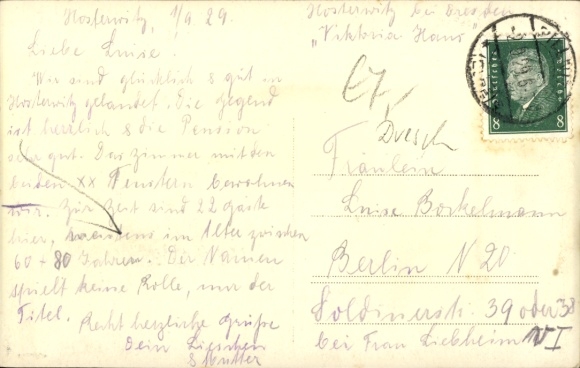 Hosterwitz, 1/9 29.
Liebe Luise.
Wir sind glücklich & gut in
Hosterwitz gelandet. Die Gegend
ist herrlich & die Pension
sehr gut. Das Zimmer mit den
beiden xx Fenstern bewohnen
wir. Zur Zeit sind 22 Gäste
hier, meistens im Alter zwischen
60 + 80 Jahren. Der Namen
spielt keine Rolle, nur der
Titel. Recht herzliche Grüße
Dein Lieschen
& Mutter
Hosterwitz bei Dresden
"Viktoria Haus"
8 8
Dresd
Fräulein
Luise Borkelmann
Berlin N 20
Soldinerstr. 39 oder 38
bei Frau Liebheim
VI